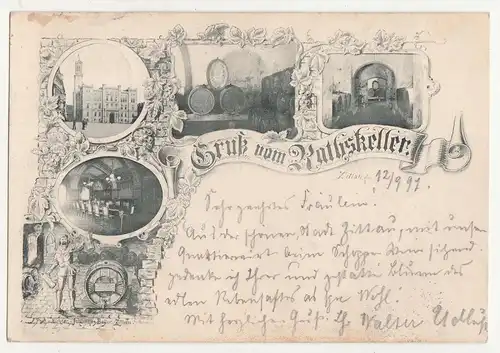 Gruß vom Rathskeller
Zittau, 12/9 97.
Sehr geehrtes Fräulein!
Aus der schönen Stadt Zittau, mit unserm
Quartierwirt beim Schoppen Wein sitzend
gedenke ich Ihrer und
edlen Rebensaftes auf Ihr Wohl!
Mit herzlicher Gruß. Ihr Walter